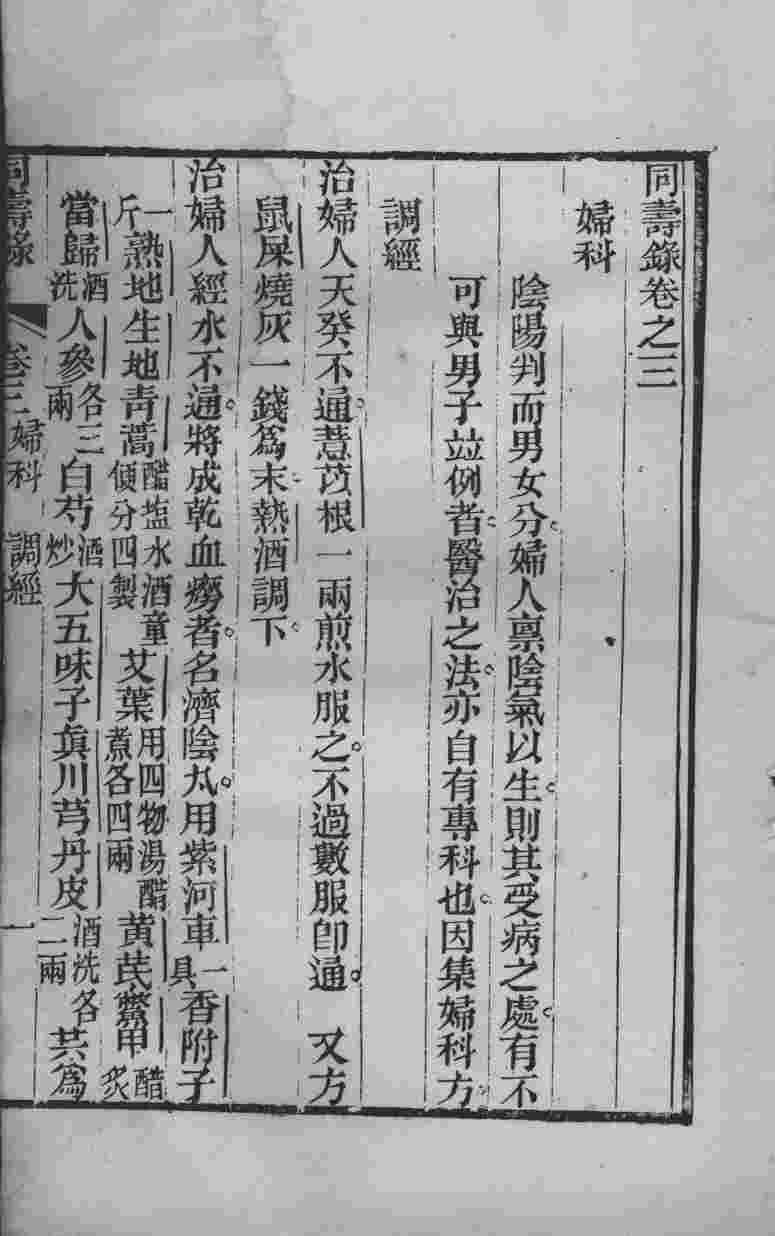 同壽錄卷之三
婦科
陰陽判而男女分婦人稟陰氣以生則其受病之處有不
可與男子竝例者醫治之法亦自有專科也因集婦科方
調經
治婦人天癸不通薏苡根一兩煎水服之不過數服卽通　又方
鼠屎燒灰一錢爲末熱酒調下
治婦人經水不通將成乾血癆者名濟陰丸用紫河車一具香附子
一斤熟地生地青蒿醋塩水酒童便分四製艾葉用四物湯醋煮各四兩黃芪鱉甲醋炙
當歸酒洗人參各三兩白芍酒炒大五味子眞川芎丹皮酒洗各二兩共爲
同壽錄　卷三　婦科　調經　一